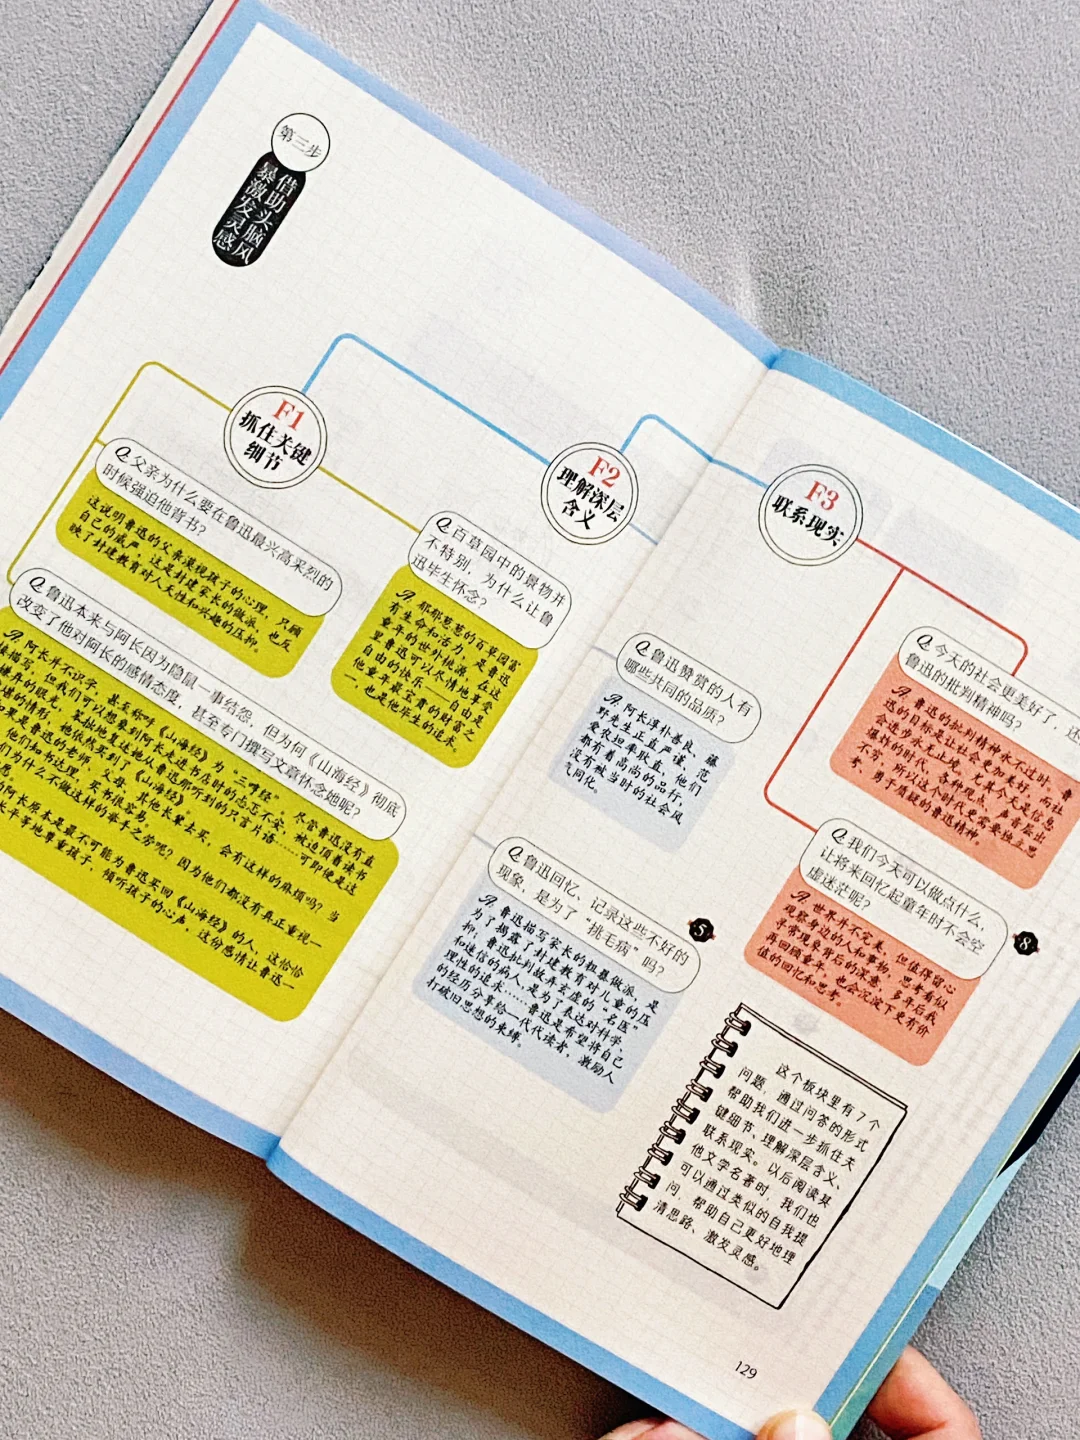 第三步
借助头脑风
暴激发灵感
F1
抓住关键
细节
Q:父亲为什么要在鲁迅最兴高采烈的
时候强迫他背书?
这说明鲁迅的父亲漠视孩子的心理,只顾
自己的威严。这是封建家长的做派,也反
映了封建教育对人天性和兴趣的压抑。
Q:百草园中的景物并
不特别,为什么让鲁
迅毕生怀念?
A:郁郁葱葱的百草园富
有生命和活力,是鲁迅
童年的世外桃源,在这
里鲁迅可以尽情地享受
自由的快乐——自由是
他童年最宝贵的财富之
一,也是他毕生的追求。
Q:鲁迅本来与阿长因为隐鼠一事结怨,但为何《山海经》彻底
改变了他对阿长的感情态度,甚至专门撰写文章怀念她呢?
A:阿长并不识字,甚至称呼《山海经》为“三哼经”。尽管鲁迅没有直
接描写,但我们可以想象到阿长走进书店时的忐忑不安,被迫顶着读书
嫌弃的眼光,笨拙地复述她从鲁迅那听到的只言片语……可即使是这
堪的情形,她依然买到了《山海经》。
如果是鲁迅的老师,父母,其他长辈去买,会有这样的麻烦吗?当
们知书达理,买书很容易。
们为什么不做这样的举手之劳呢?因为他们都没有真正重视
愿。
的阿长原本是最不可能为鲁迅买回《山海经》的人,这恰恰
长平等地尊重孩子,倾听孩子的心声,这份感情让鲁迅一
F2
理解深层
含义
Q:鲁迅赞赏的人有
哪些共同的品质?
A:阿长淳朴善良,藤
野先生正直严谨,范
爱农坦率耿直,他们
都有着高尚的品行,
没有被当时的社会风
气同化。
Q:鲁迅回忆、记录这些不好的
现象,是为了“挑毛病”吗?
A:鲁迅描写家长的粗暴做派,是
为了揭露了封建教育对儿童的压
抑;鲁迅批判故弄玄虚的“名医”
和迷信的病人,是为了表达对科学、
理性的追求……鲁迅是希望将自己
的经历分享给一代代读者,激励人
打破旧思想的束缚。
5
F3
联系现实
Q:今天的社会更美好了,还
鲁迅的批判精神吗?
A:鲁迅的批判精神永不过时,鲁
迅的目标是让社会更加美好,而社
会进步永无止境,尤其今天是信息
爆炸的时代,各种现点、声音层出
不穷,所以这个时代更需要独立思
考、勇于质疑的鲁迅精神。
Q:我们今天可以做点什么,
让将来回忆起童年时不会空
虚迷茫呢?
A:世界并不完美,但值得留心
观察身边的人和事物,思考看似
平常现象背后的深意,多年后我
们回顾童年,也会沉淀下更有价
值的回忆和思考。
8
这个板块里有7个
问题,通过问答的形式
帮助我们进一步抓住关
键细节、理解深层含义、
联系现实。以后阅读其
他文学名著时,我们也
可以通过类似的自我提
问,帮助自己更好地理
清思路、激发灵感。
129